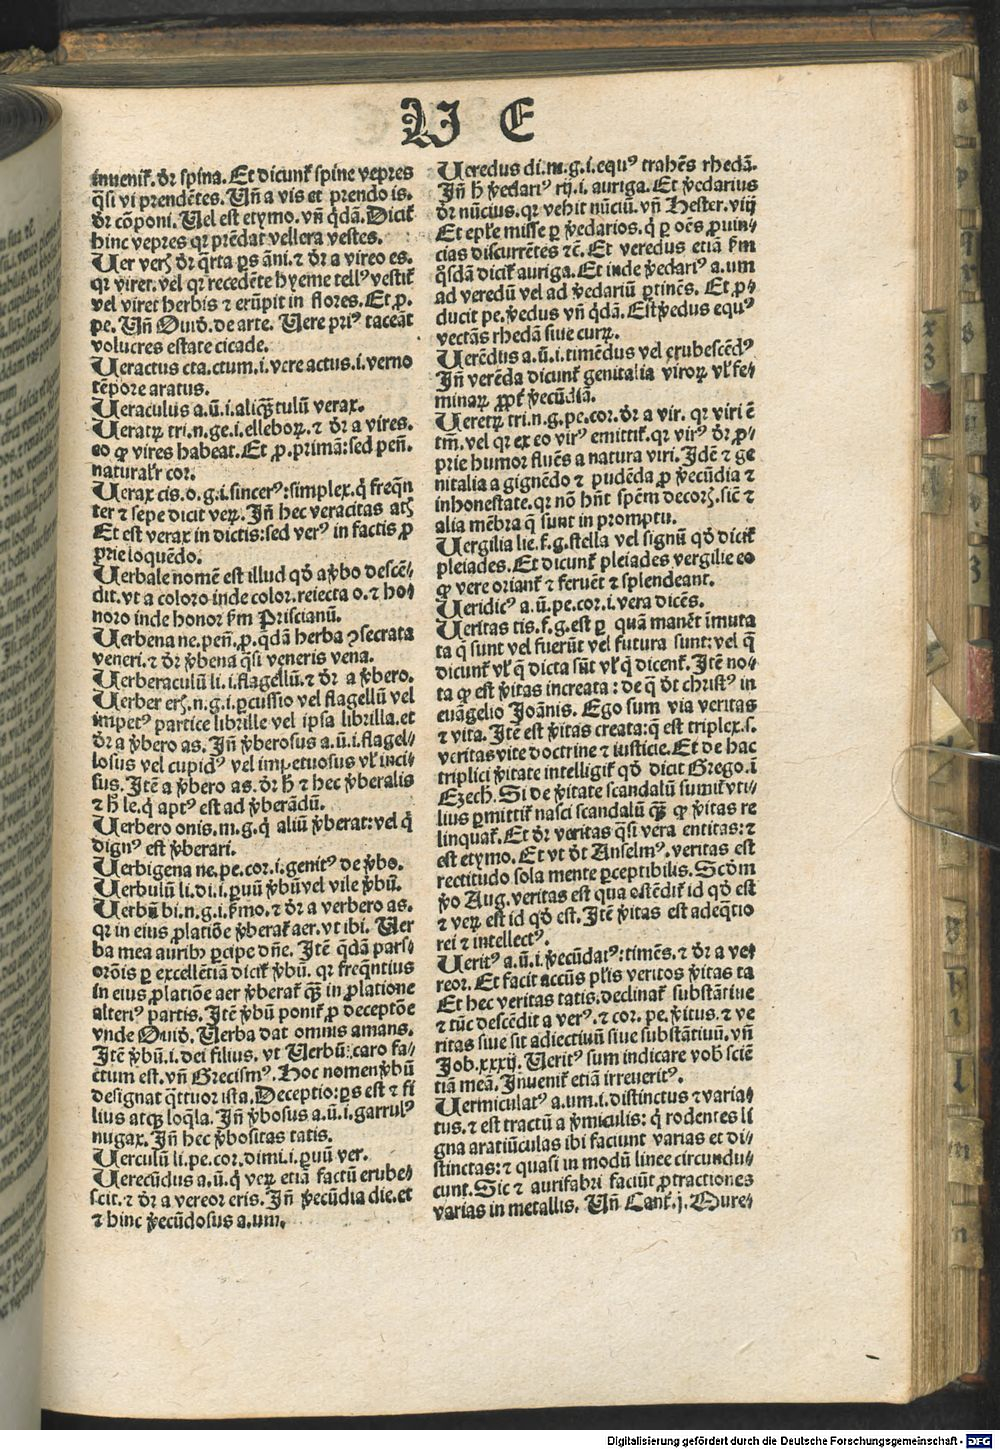 U E
inuenit᷑. dr̄ spina. Et dicunt᷑ spine vepres
q̄si vi prendētes. Un̄ a vis et prendo is.
dr̄ cōponi. Uel est etymo. vn̄ q̄dā. Dicit᷑
hinc vepres qr prēdat vellera vestes.
Uer verꝭ dr̄ q̄rta ꝑs āni. ⁊ dr̄ a vireo es.
qr viret. vel qr recedēte hyeme tellꝰ vestit᷑
vel viret herbis ⁊ erūpit in flores. Et ꝓ.
pe. Un̄ Ouiđ. de arte. Uere priꝰ taceāt
volucres estate cicade.
Ueractus cta. ctum. i. vere actus. i. verno
tēpore aratus.
Ueraculus a. ū. i. aliq̄ntulū verax.
Ueratꝝ tri. n. ge. i. elleboꝝ. ⁊ dr̄ a vires.
eo ꝙ vires habeat. Et ꝓ. primā: sed pen̄.
naturalr̄ cor.
Uerax cis. o. g. i. sincerꝰ: simplex. q̇ freq̄n
ter ⁊ sepe dicit veꝝ. Jn̄ hec veracitas atꝭ
Et est verax in dictis: sed verꝰ in factis ꝓ
prie loquēdo.
Uerbale nomē est illud qđ a v̄bo descē⸗
dit. vt a coloro inde color. reiecta o. ⁊ ho⸗
noro inde honor km̄ Priscianū.
Uerbena ne. pen̄. ꝓ. q̄dā herba ꝯsecrata
veneri. ⁊ dr̄ v̄bena q̄si veneris vena.
Uerberaculū li. i. flagellū. ⁊ dr̄ a v̄bero.
Uerber erꝭ. n. g. i. ꝑcussio vel flagellū vel
impetꝰ partice librille vel ipsa librilla. et
dr̄ a v̄bero as. Jn̄ v̄berosus a. ū. i. flagel⸗
losus vel cupidꝰ vel impetuosus vl̄ inci⸗
sus. Jtē a v̄bero as. dr̄ h̄ ⁊ hec v̄beralis
⁊ h̄ le. q̇ aptꝰ est ad v̄berādū.
Uerbero onis. m. g. q̇ aliū v̄berat: vel q̇
dignꝰ est v̄berari.
Uerbigena ne. pe. cor. i. genitꝰ de v̄bo.
Uerbulū li. di. i. ꝑuū v̄bū vel vile v̄bū.
Uerbū bi. n. g. i. ẜmo. ⁊ dr̄ a verbero as.
qr in eius ꝓlatiōe v̄berat᷑ aer. vt ibi. Uer
ba mea auribꝰ ꝑcipe dn̄e. Jtē q̄dā pars⸗
orōis ꝑ excellētiā dicit᷑ v̄bū. qr freq̄ntius
in eius ꝓlatiōe aer v̄berat᷑ qꝫ̄ in ꝓlatione
alteriꝰ partis. Jtē v̄bū ponit᷑ ꝓ deceptōe
vnde Ouiđ. Uerba dat omnis amans.
Jtē v̄bū. i. dei filius. vt Uerbū caro fa⸗
ctum est. vn̄ Grecismꝰ. Hoc nomen v̄bū
designat q̄ttuor ista, Deceptio: ꝑs est ⁊ fi
lius atqꝫ loq̄la. Jn̄ v̄bosus a. ū. i. garrulꝰ
nugax. Jn̄ hec v̄bositas tatis.
Uerculū li. pe. cor. dimi. i. ꝑuū ver.
Uerecūdus a. ū. q̇ veꝝ etiā factū erube⸗
scit. ⁊ dr̄ a vereor eris. Jn̄ v̄ecūdia die. et
⁊ hinc v̄ecūdosus a. um.
Ueredus di. m. g. i. equꝰ trahēs rhedā.
Jn̄ h̄ v̄edariꝰ rij. i. auriga. Et v̄edarius
dr̄ nūcius. qr vehit nūciū. vn̄ Hester. viij
Et ep̄le misse ꝑ v̄edarios. q̇ ꝑ oēs ꝓuin⸗
cias discurrētes ⁊c̄. Et veredus etiā ẜm
q̄sdā dicit᷑ auriga. Et inde v̄edariꝰ a. um
ad veredū vel ad v̄edariū ꝑtinēs. Et ꝓ⸗
ducit pe. v̄edus vn̄ q̄dā. Est v̄edus equꝰ
vectās rhedā siue curꝝ.
Uerēdus a. ū. i. timēdus vel erubescēdꝰ
Jn̄ verēda dicunt᷑ genitalia viroꝝ vl̄ fe⸗
minaꝝ ꝓpt̄ v̄ecūdiā.
Ueretꝝ tri. n. g. pe. cor. dr̄ a vir. qr viri ē
tm̄. vel qr ex eo virꝰ emittit᷑. qr virꝰ dr̄ ꝓ⸗
prie humor fluēs a natura viri. Jdē ⁊ ge
nitalia a gignēdo ⁊ pudēda ꝓ v̄ecūdia ⁊
inhonestate. qr nō hn̄t spēm decorꝭ. sic̄ ⁊
alia mēbra q̄ sunt in promptu.
Uergilia lie. f. g. stella vel signū qđ dicit᷑
pleiades. Et dicunt᷑ pleiades vergilie eo
ꝙ vere oriant᷑ ⁊ feruēt ⁊ splendeant.
Ueridicꝰ a. ū. pe. cor. i. vera dicēs.
Ueritas tis. f. g. est ꝑ quā manēt īmuta
ta q̄ sunt vel fuerūt vel futura sunt: vel q̄
dicunt᷑ vl̄ q̄ dicta sūt vl̄ q̄ dicent᷑. Jtē no⸗
ta ꝙ est v̄itas increata: de q̄ dt̄ christꝰ in
euāgelio Joānis. Ego sum via veritas
⁊ vita. Jtē est v̄itas creata: q̄ est triplex. s.
veritas vite doctrine ⁊ iusticie. Et de hac
triplici v̄itate intelligit᷑ qđ dicit Grego. ī
Ezech. Si de v̄itate scandalū sumit᷑ vti⸗
lius ꝑmittit᷑ nasci scandalū qꝫ̄ ꝙ v̄itas re
linquat᷑. Et dr̄ veritas q̄si vera entitas: ⁊
est etymo. Et vt dt̄ Anselmꝰ. veritas est
rectitudo sola mente ꝑceptibilis. Scđm
v̄o Aug. veritas est qua ostēdit᷑ id qđ est
⁊ veꝝ est id qđ est. Jtē v̄itas est adeq̄tio
rei ⁊ intellectꝰ.
Ueritꝰ a. ū. i. v̄ecūdatꝰ: timēs. ⁊ dr̄ a ve⸗
reor. Et facit accūs pl̄is veritos v̄itas ta
Et hec veritas tatis. declinat᷑ substātiue
⁊ tūc descēdit a verꝰ. ⁊ cor. pe. v̄itus. ⁊ ve
ritas siue sit adiectiuū siue substātiuū. vn̄
Job. xxxij. Ueritꝰ sum indicare vob̄ sciē
tiā meā. Jnuenit᷑ etiā irreueritꝰ.
Uermiculatꝰ a. um. i. distinctus ⁊ varia⸗
tus. ⁊ est tractū a v̄miculis: q̇ rodentes li
gna aratiūculas ibi faciunt varias et di⸗
stinctas: ⁊ quasi in modū linee circundu⸗
cunt. Sic ⁊ aurifabri faciūt ꝓtractiones
varias in metallis. Un̄ Cant̄. j. Mure⸗
Digitalisierung gefördert durch die Deutsche Forschungsgemeinschaft - DFG